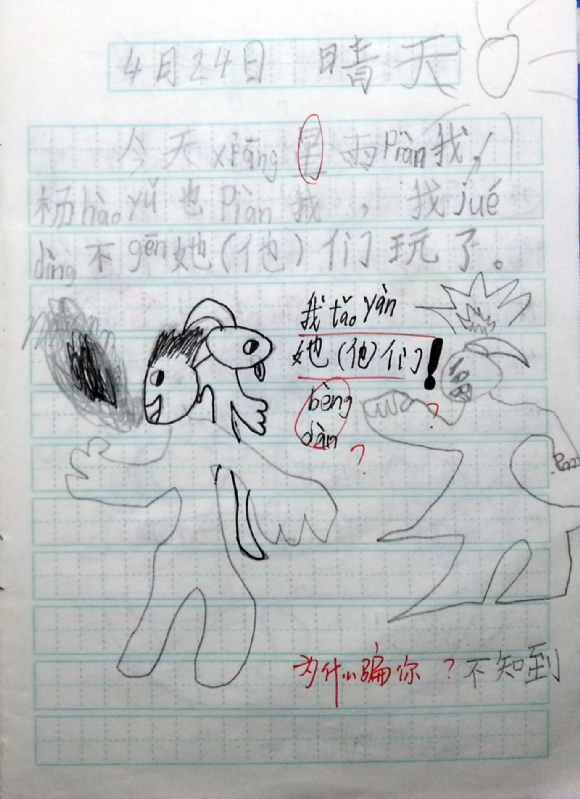 4月24日 晴天
今天xiāng 星雨Piàn我，
杨hào yǔ也Piàn我，我jué
dìng不gēn她(他)们玩了。
我tǎo yàn
她(他)们!
bèng
dàn
?
?
为什么骗你？不知到